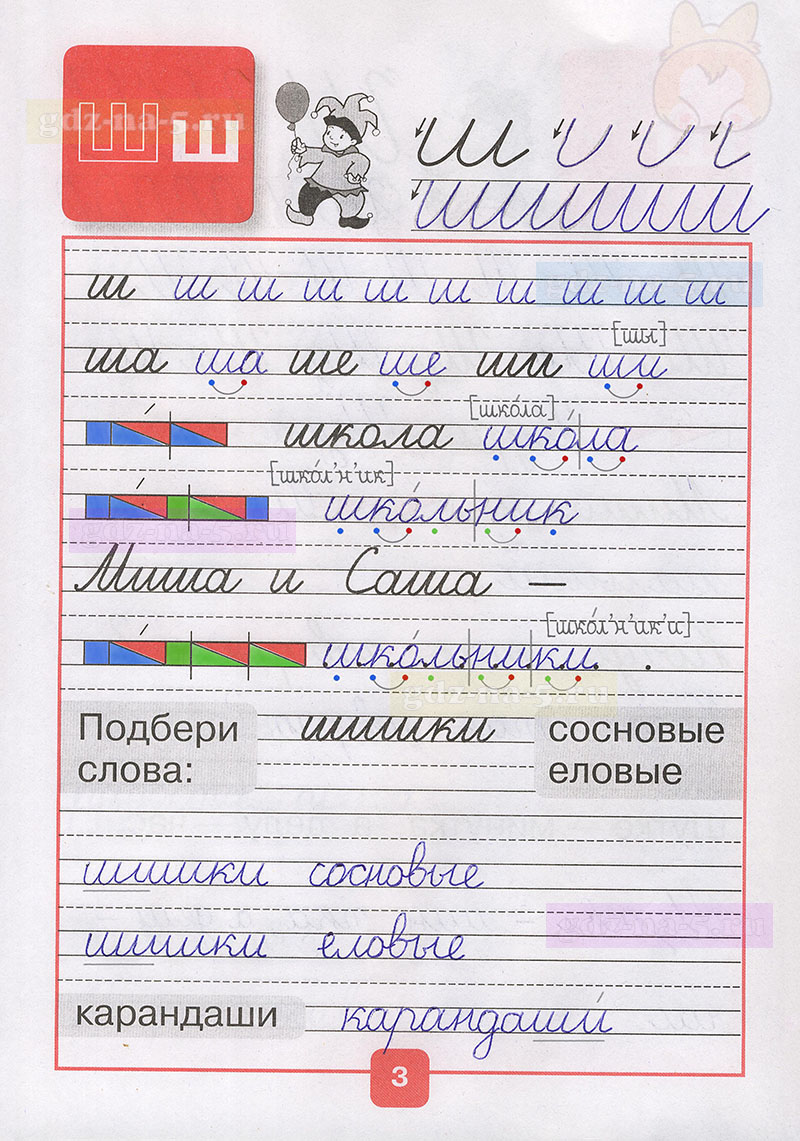 Ш ш
gdz-na-5.ru
Ш
Ш Ш Ш Ш Ш
ш ш ш ш ш ш ш ш ш ш
[шы]
ша ша ше ше ши ши
[шко́ла]
школа шко́ла
[шко́л'н'ик]
шко́льник
Миша и Саша —
[шко́л'н'ик'и]
шко́льники .
gdz-na-5.ru
Подбери слова:
шишки
сосновые
еловые
шишки сосновые
шишки еловые
gdz-na-5.ru
карандаши карандаши́
3